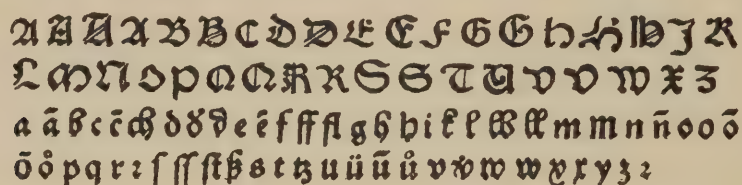 A A A A B B C D D E E F G G H H H J K
L M N O P Q Q R R S S T U V V W X Z
a ā b c c̄ ch d d d e ē f ff fl g h h i k l ll ll m m n n̄ o o ō
ö o̊ p q r ꝛ ſ ſſ ſt ß s t tz u ü ū ů v v w w x x y z ꝛ